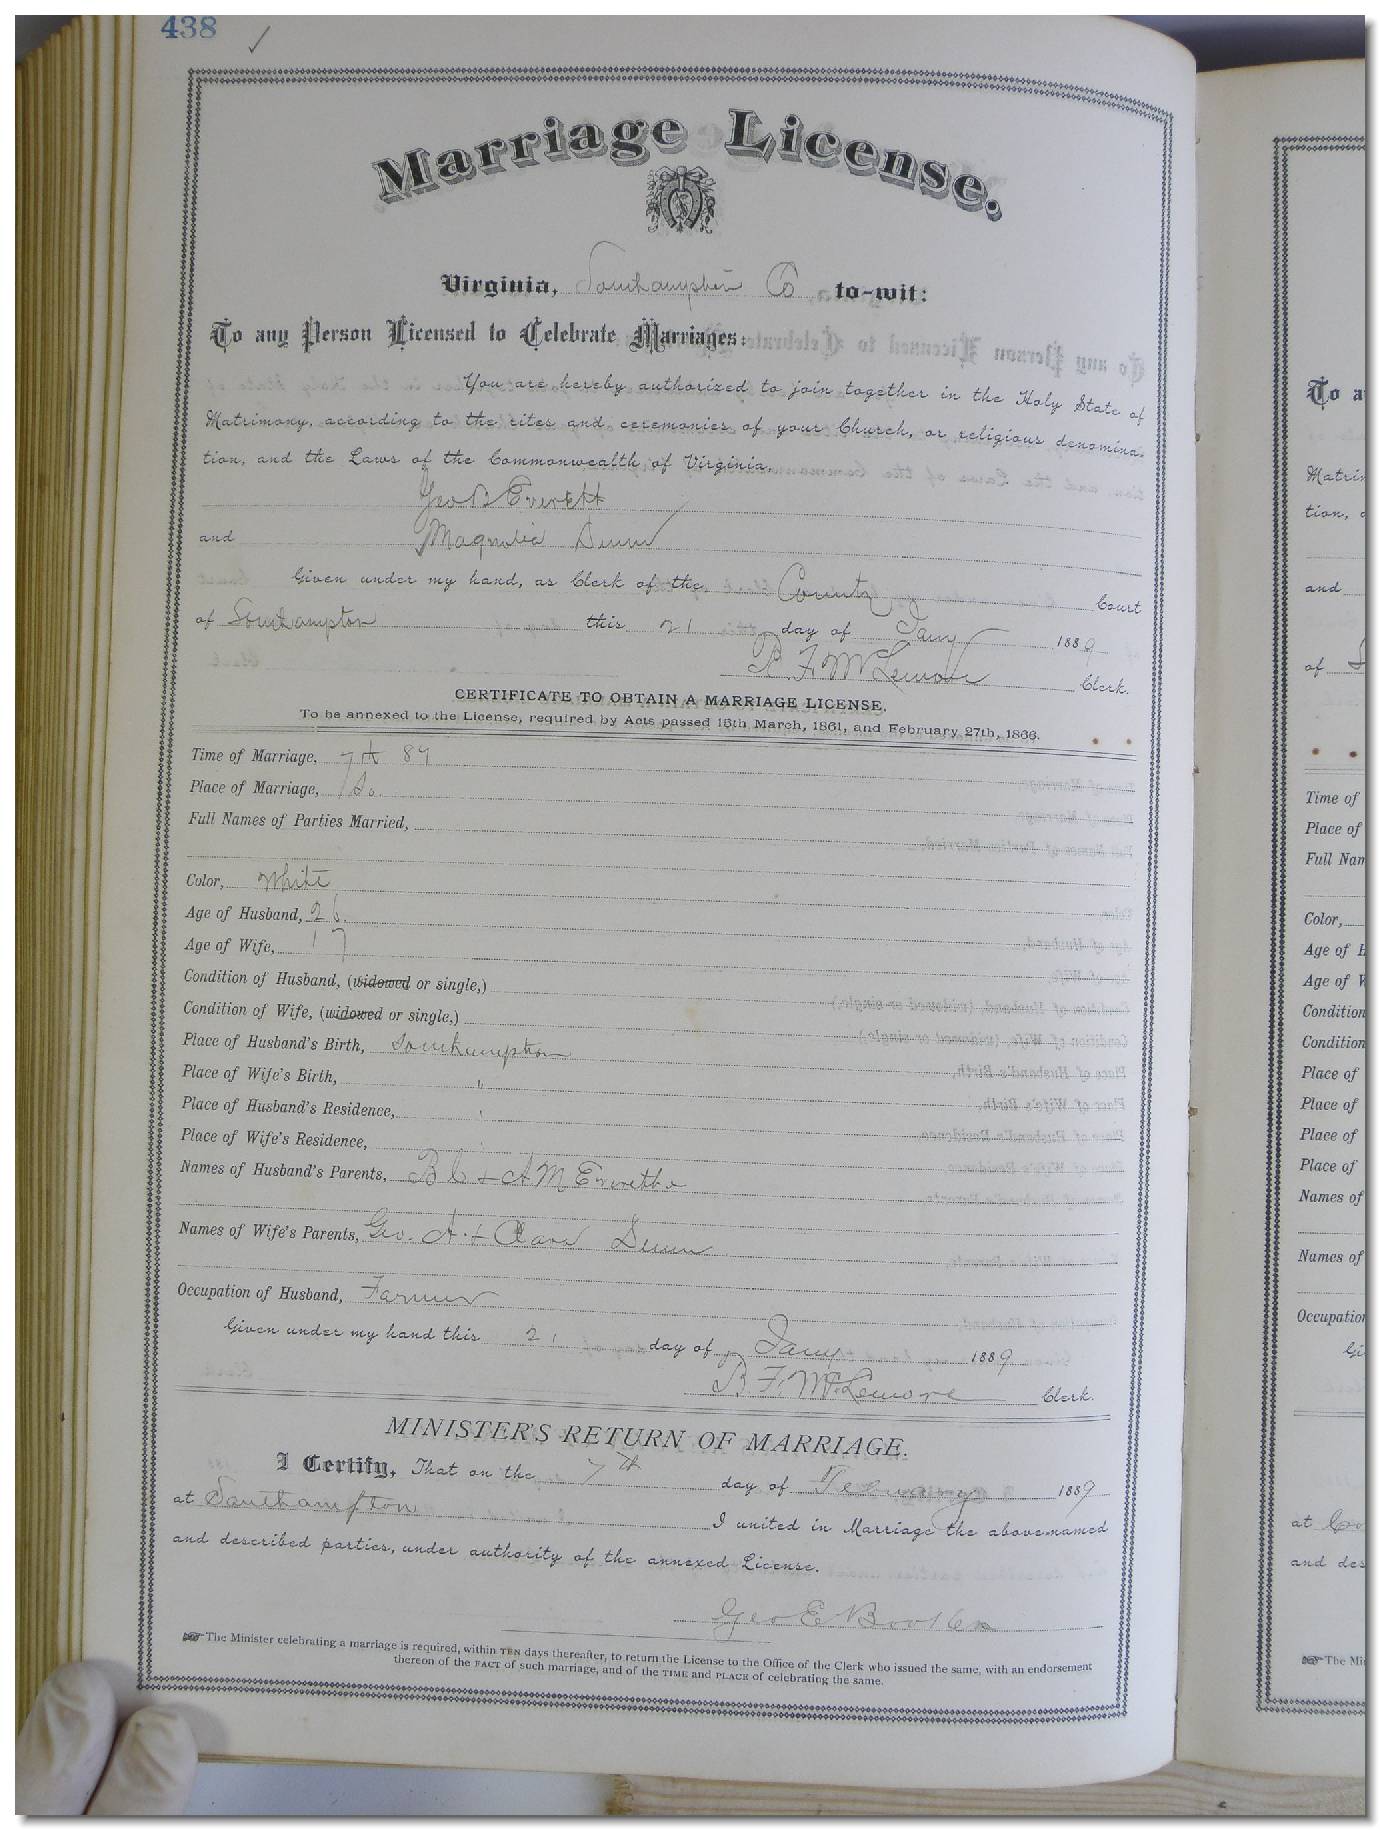 438 ✓
Marriage License.
Virginia, Southampton Co to-wit:
To any Person Licensed to Celebrate Marriages:
You are hereby authorized to join together in the Holy State of
Matrimony, according to the rites and ceremonies of your Church, or religious denomina-
tion, and the Laws of the Commonwealth of Virginia,
Geo B Everett
and Magnolia Dunn
Given under my hand, as Clerk of the County Court
of Southampton this 21 day of Jany 1889
B. F. McLemore Clerk.
CERTIFICATE TO OBTAIN A MARRIAGE LICENSE.
To be annexed to the License, required by Acts passed 15th March, 1861, and February 27th, 1866.
Time of Marriage, 89
Place of Marriage,
Full Names of Parties Married,
Color, White
Age of Husband, 26.
Age of Wife, 17
Condition of Husband, (widowed or single,)
Condition of Wife, (widowed or single,)
Place of Husband's Birth, Southampton
Place of Wife's Birth, "
Place of Husband's Residence, "
Place of Wife's Residence,
Names of Husband's Parents, B C + A M
Names of Wife's Parents, Geo. A. + Clara Dunn
Occupation of Husband, Farmer
Given under my hand this 21 day of Jany 1889
B. F. McLemore Clerk.
MINISTER'S RETURN OF MARRIAGE.
I Certify, That on the 7th day of 1889
at Southampton I united in Marriage the above-named
and described parties, under authority of the annexed License.
Geo E
☞ The Minister celebrating a marriage is required, within TEN days thereafter, to return the License to the Office of the Clerk who issued the same, with an endorsement
thereon of the FACT of such marriage, and of the TIME and PLACE of celebrating the same.
To a
Matri
tion,
and
of
Time of
Place of
Full Nam
Color,
Age of H
Age of W
Condition
Condition
Place of
Place of
Place of
Place of
Names of
Names of
Occupation
Gi
at Co
and des
☞ The Mi